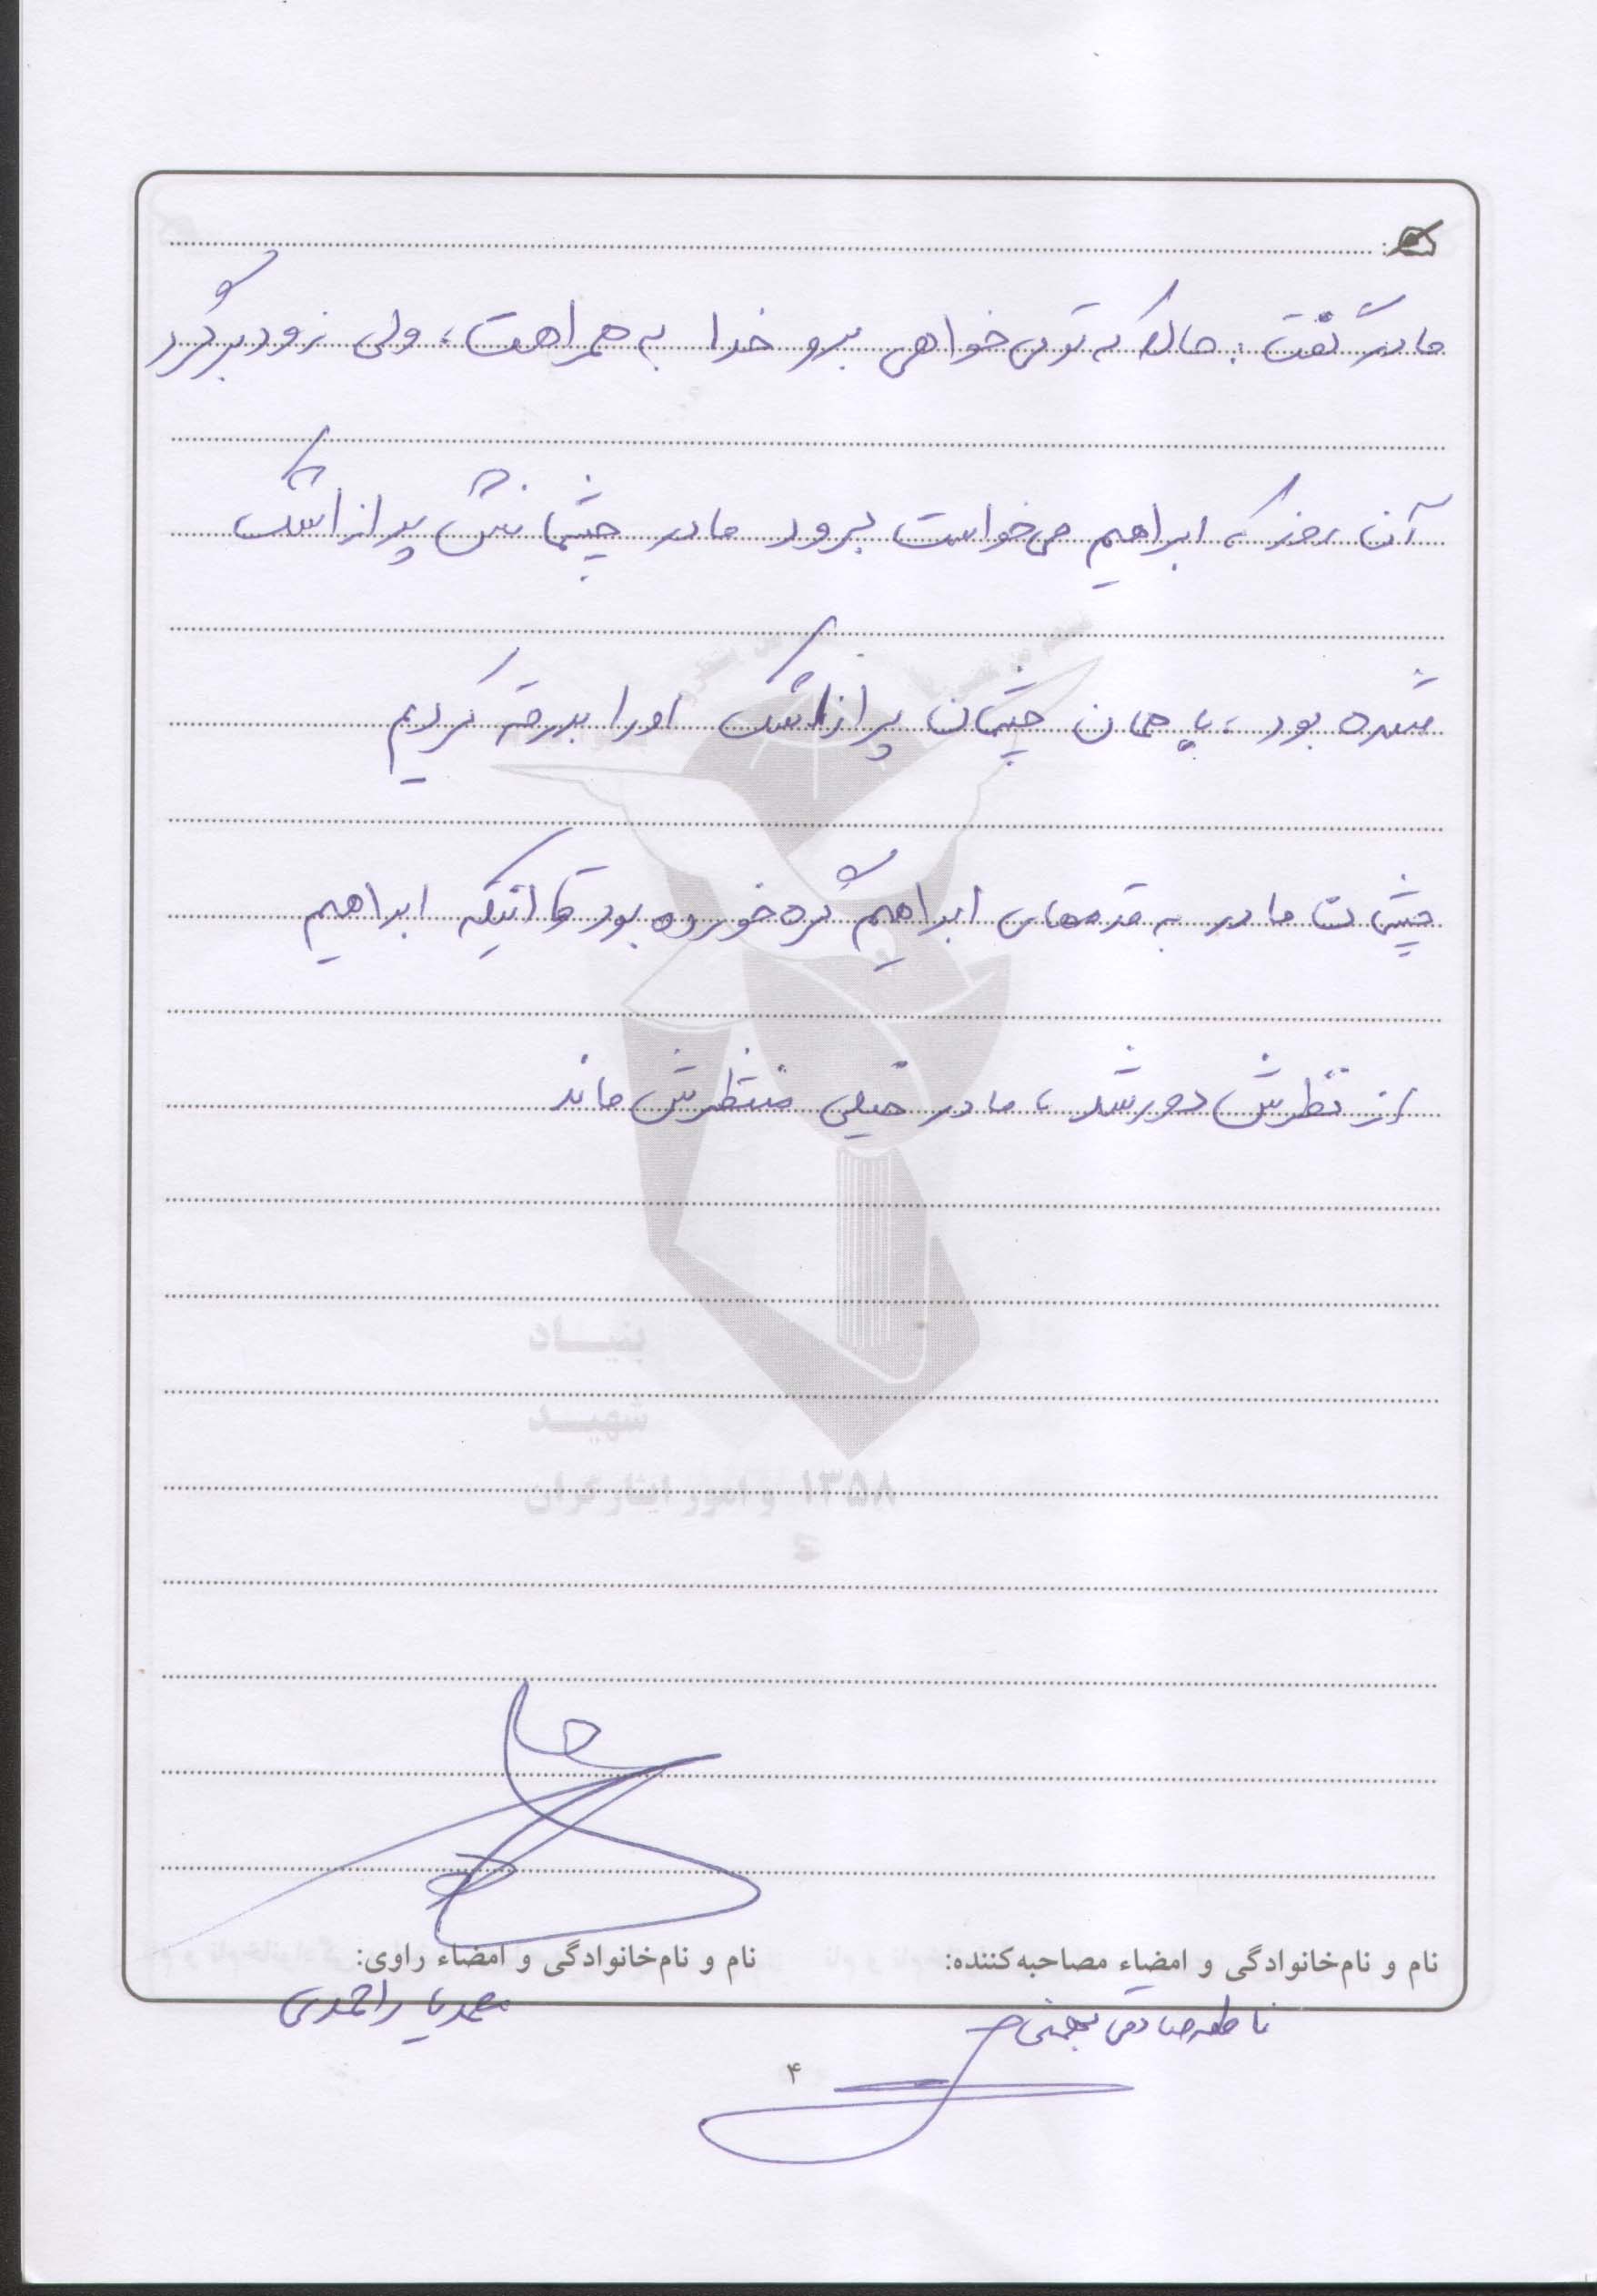 مادر گفت: حالا که تو می‌خواهی برو خدا به همراهت، ولی زود برگرد
آن روز که ابراهیم می‌خواست برود مادر چشمانش پر از اشک
شده بود، با همان چشمان پر از اشک او را بدرقه کردیم
چشمان مادر به قدمهای ابراهیم گره خورده بود تا اینکه ابراهیم
از نظرش دور شد، مادر خیلی منتظرش ماند
بنیاد
شهید
و امور ایثارگران ۱۳۵۸
نام و نام‌خانوادگی و امضاء مصاحبه‌کننده: نام و نام‌خانوادگی و امضاء راوی:
صادقی محمدیار احمدی
۴